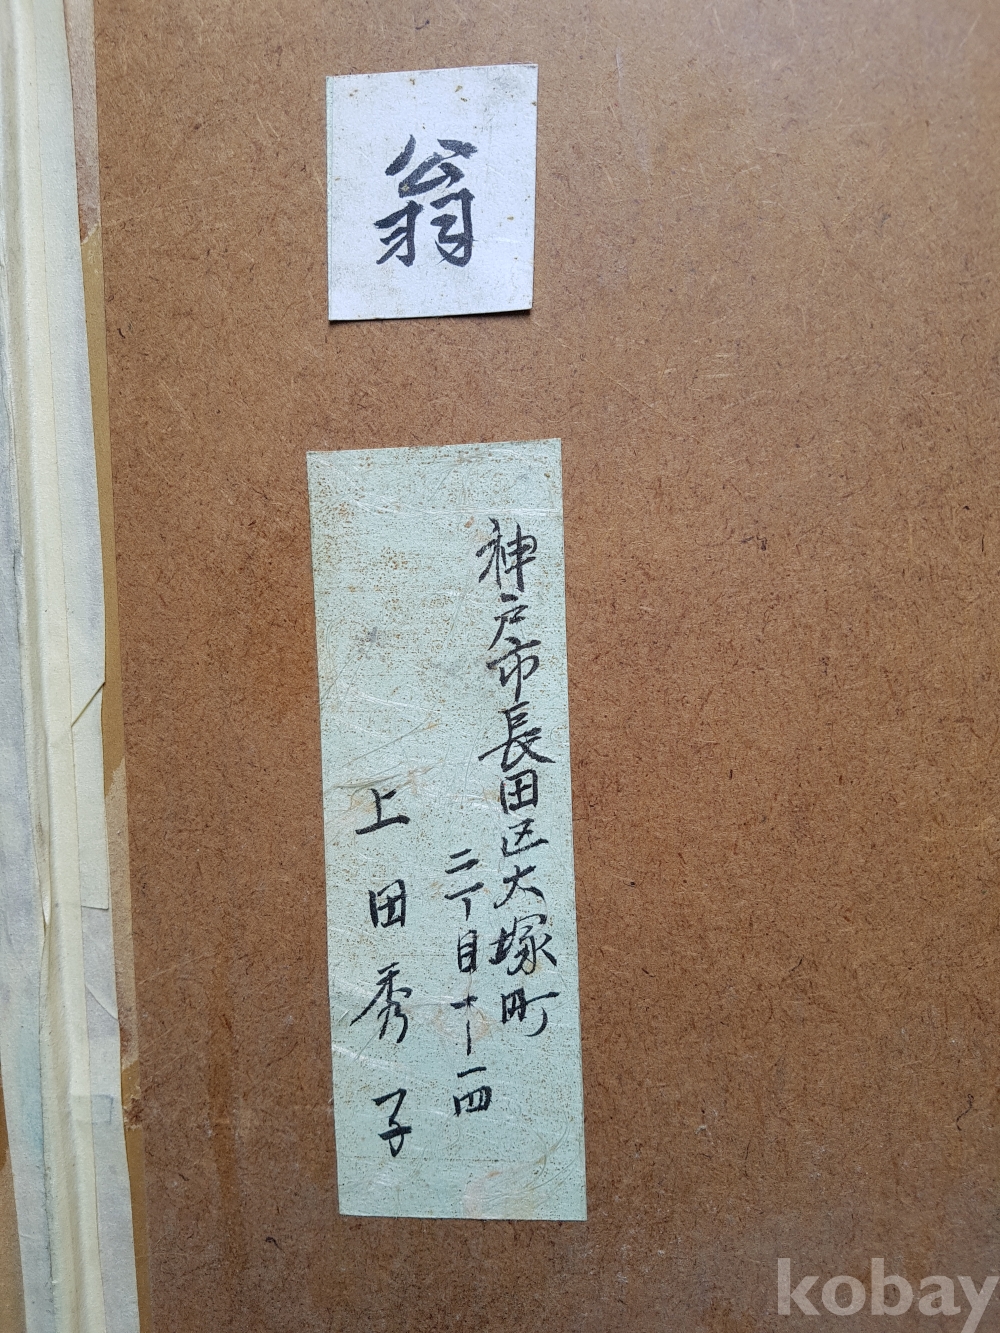 翁
神戸市長田区大塚町
二丁目十一一四
上田秀子
kobay